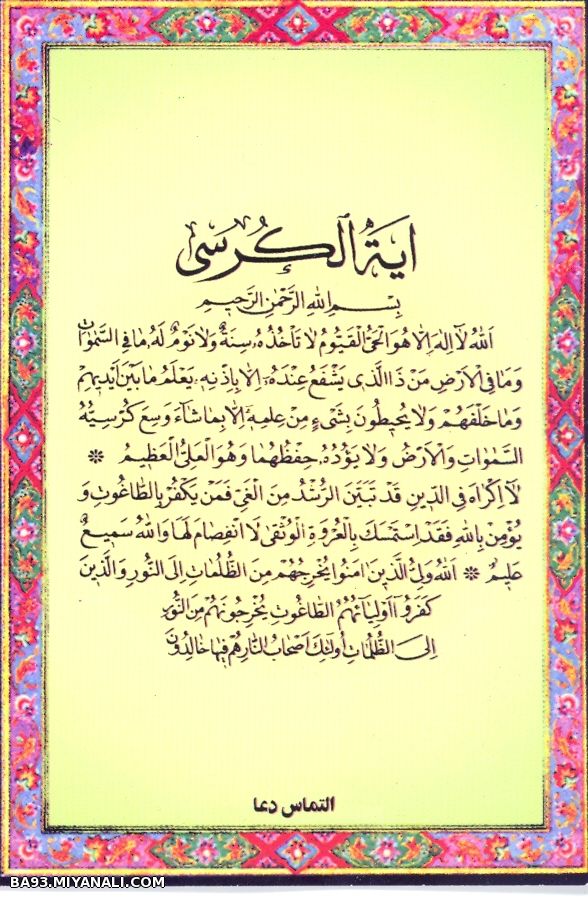 اٰیَةُ الْکُرْسی
بِسْمِ اللّٰهِ الرَّحْمٰنِ الرَّحیمِ
اَللّٰهُ لَآ اِلٰهَ اِلَّا هُوَ الْحَیُّ الْقَیُّومُ لَا تَاْخُذُهُ سِنَةٌ وَلَا نَوْمٌ لَهُ مَا فِی السَّمٰوَاتِ
وَمَا فِی الْاَرْضِ مَنْ ذَا الَّذی یَشْفَعُ عِنْدَهُ اِلَّا بِاِذْنِهِ یَعْلَمُ مَا بَیْنَ اَیْدیهِمْ
وَمَا خَلْفَهُمْ وَلَا یُحیطُونَ بِشَیْءٍ مِنْ عِلْمِهِ اِلَّا بِمَا شَآءَ وَسِعَ کُرْسِیُّهُ
السَّمٰوَاتِ وَالْاَرْضَ وَلَا یَؤُدُهُ حِفْظُهُمَا وَهُوَ الْعَلِیُّ الْعَظیمُ *
لَآ اِکْرَاهَ فِی الدّینِ قَدْ تَبَیَّنَ الرُّشْدُ مِنَ الْغَیِّ فَمَنْ یَکْفُرْ بِالطَّاغُوتِ وَ
یُؤْمِنْ بِاللّٰهِ فَقَدِ اسْتَمْسَکَ بِالْعُرْوَةِ الْوُثْقٰی لَا انْفِصَامَ لَهَا وَاللّٰهُ سَمیعٌ
عَلیمٌ * اَللّٰهُ وَلِیُّ الَّذینَ اٰمَنُوا یُخْرِجُهُمْ مِنَ الظُّلُمَاتِ اِلَی النُّورِ وَالَّذینَ
کَفَرُوآ اَوْلِیَآئُهُمُ الطَّاغُوتُ یُخْرِجُونَهُمْ مِنَ النُّورِ
اِلَی الظُّلُمَاتِ اُولٰئِکَ اَصْحَابُ النَّارِ هُمْ فیهَا خَالِدُونَ
التماس دعا
BA93.MIYANALI.COM